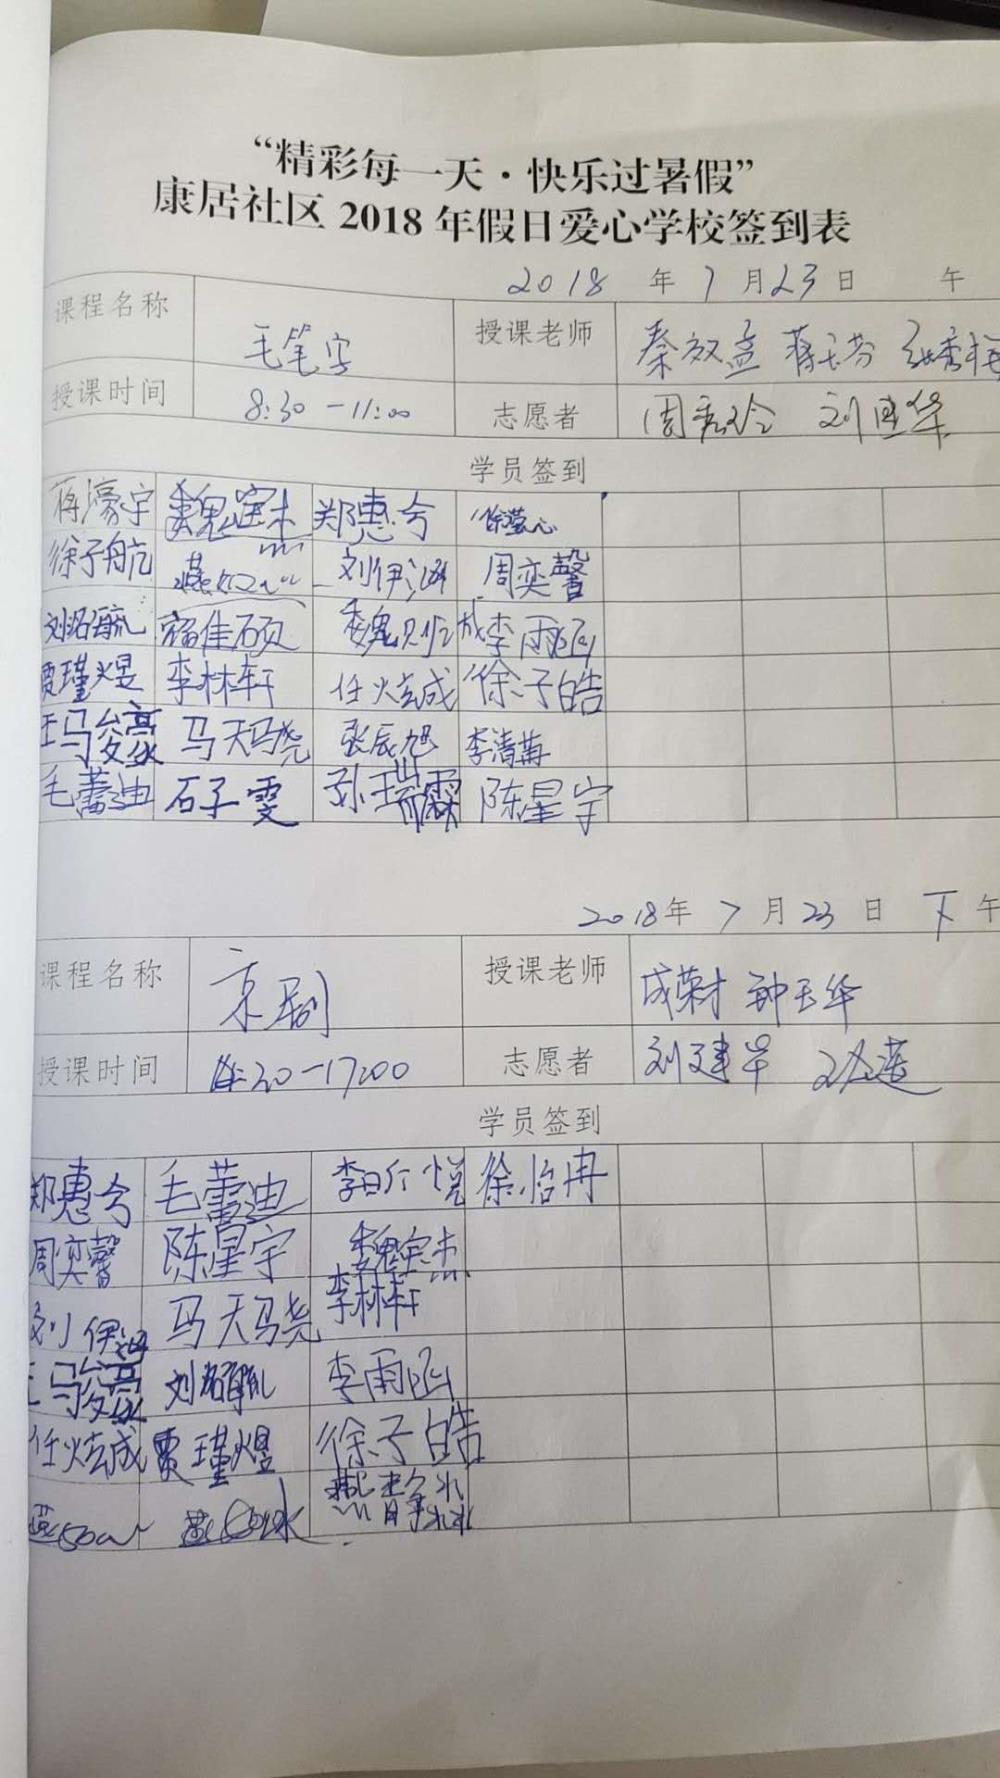 “精彩每一天·快乐过暑假”
康居社区 2018 年假日爱心学校签到表
2018 年 7 月 23 日 午
课程名称 毛笔字 授课老师 秦效孟
授课时间 8:30-11:00 志愿者
学员签到
蒋濠宇 郑惠兮 徐滢心
徐子航 刘伊 周奕馨
刘洺毓 李雨函
贾瑾煜 李林轩 任炫成 徐子皓
王骏豪 马天骁 张辰旭 李清
毛蕾迪 石子雯 孙瑞霖 陈星宇
2018年 7 月 23 日 下 午
课程名称 京剧 授课老师 成荣才 钟玉华
授课时间 志愿者 刘建华
学员签到
郑惠兮 毛蕾迪 徐怡冉
周奕馨 陈星宇
刘伊 马天骁 李林轩
刘洺毓 李雨函
任炫成 贾瑾煜 徐子皓